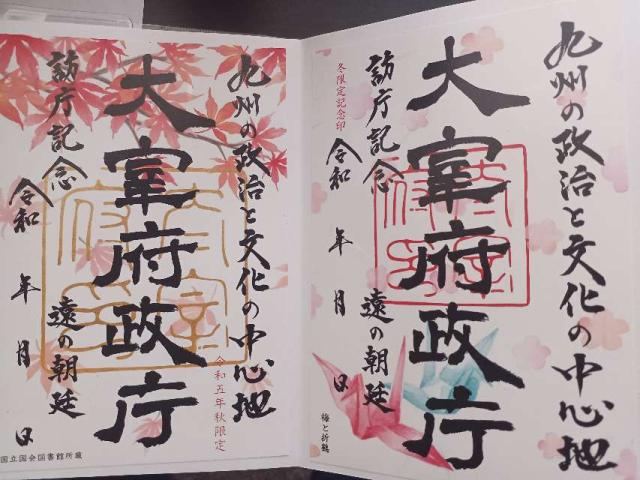 九州の政治と文化の中心地
大宰府政庁
訪庁記念 遠の朝廷
冬限定記念印
令和 年 月 日
梅と折鶴
九州の政治と文化の中心地
令和五年秋限定
大宰府政庁
訪庁記念 遠の朝廷
令和 年 月 日
国立国会図書館所蔵